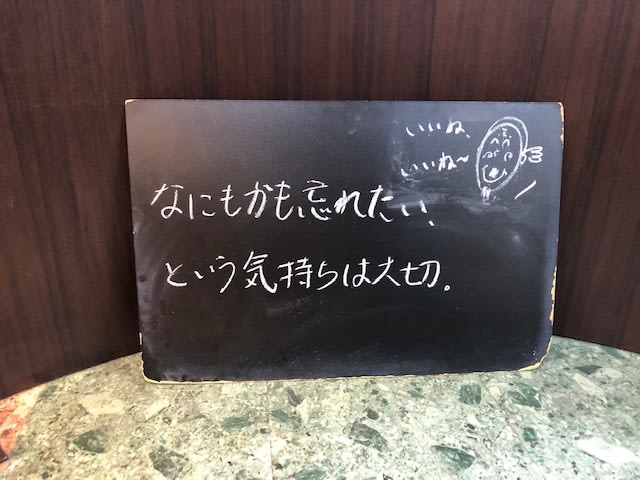 いいね、
いいね〜
なにもかも忘れたい、
という気持ちは大切。